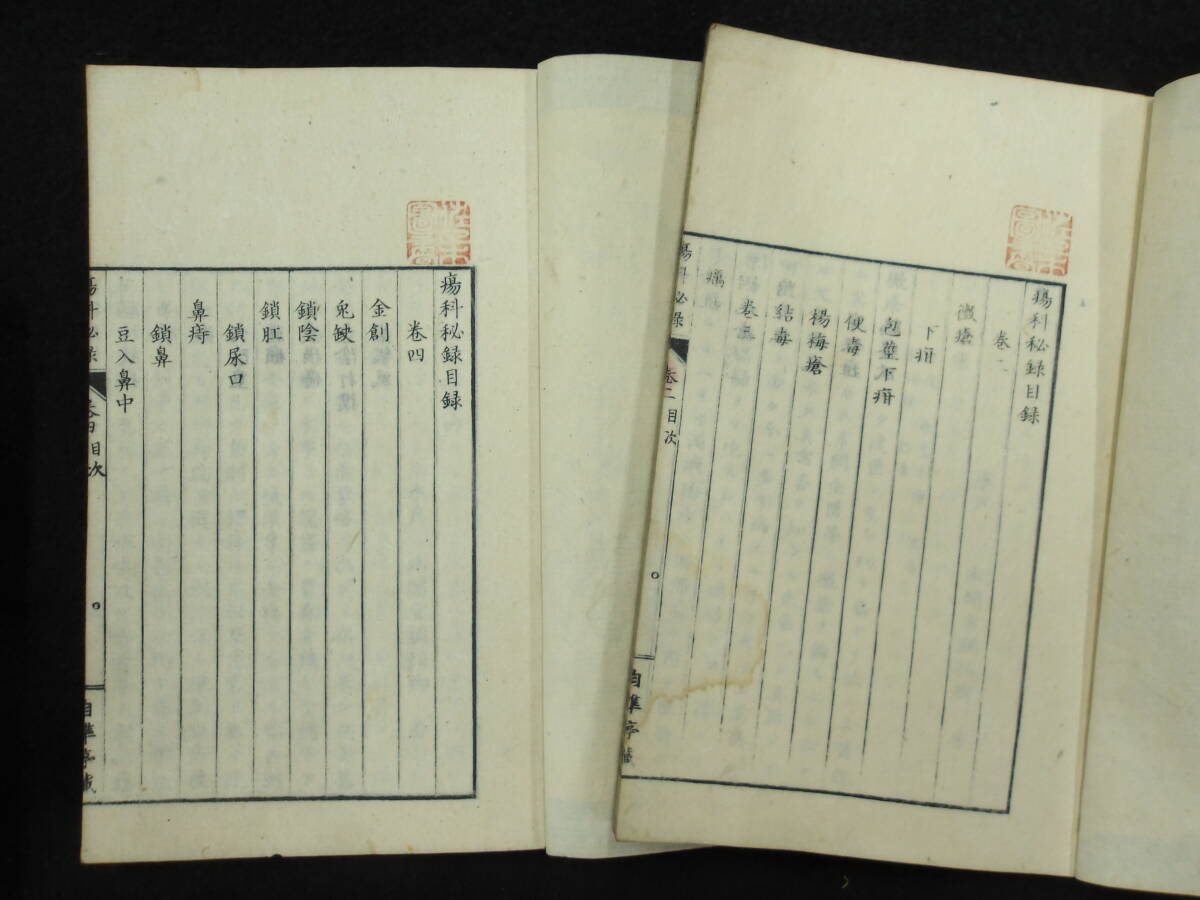 瘍科秘録目録
卷二
黴瘡
下疳
包莖下疳
便毒
楊梅瘡
結毒
卷三
癘
瘍科秘录
卷二目次
自準亭藏
瘍科秘録目録
卷四
金創
兎缺
鎖陰
鎖肛
鎖尿口
鼻痔
鎖鼻
豆入鼻中
瘍科秘录
卷四目次
自準亭藏